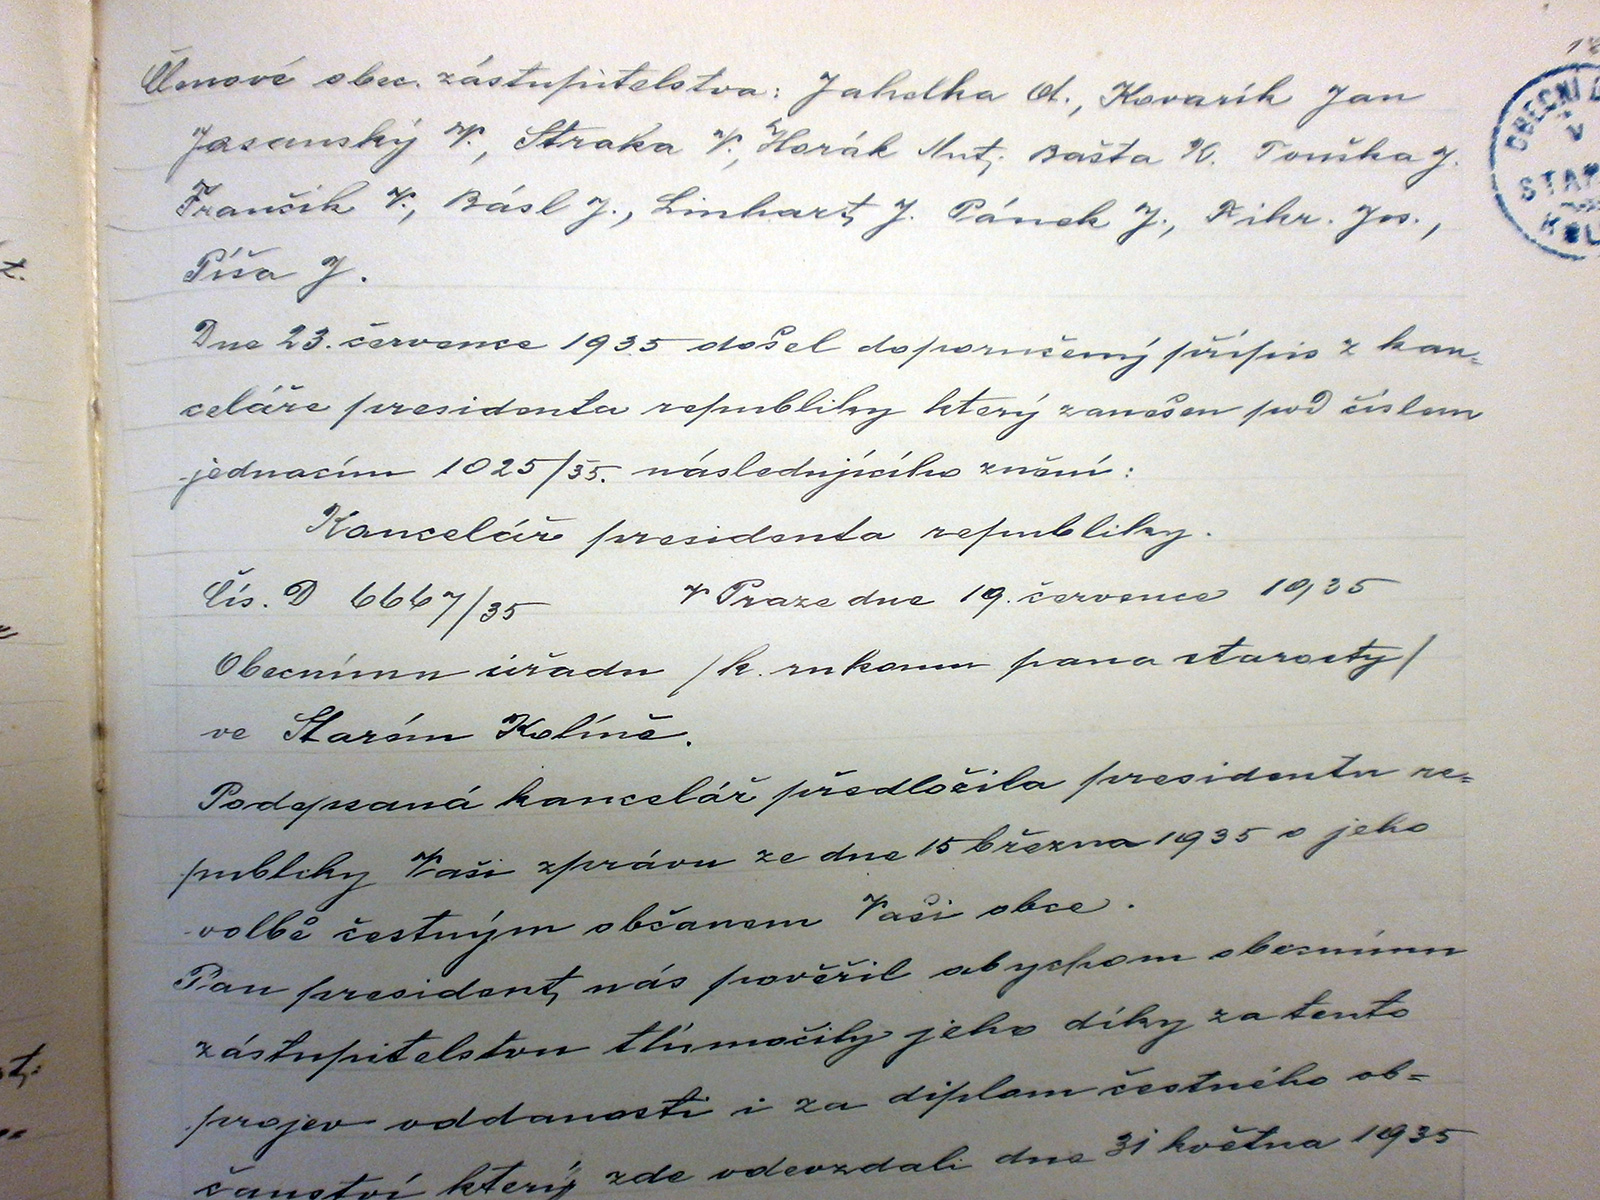 Členové obec. zástupitelstva: Jahelka A., Kovařík Jan
Jasanský V., Straka V., Horák Ant. Bašta K. Touška J.
Frančík V., Básl J., Linhart J. Pánek J., Fikr. Jos.,
Píša J.
Dne 23. července 1935 došel doporučený přípis z kan-
celáře presidenta republiky který zanešen pod číslem
jednacím 1025/35. následujícího znění:
Kancelář presidenta republiky.
Čís. D 6667/35 V Praze dne 19. července 1935
Obecnímu úřadu /k. rukoum pana starosty/
ve Starém Kolíně.
Podepsaná kancelář předložila presidentu re-
publiky Vaši zprávu ze dne 15 března 1935 o jeho
volbě čestným občanem Vaši obce.
Pan president nás pověřil abychom obecnímu
zástupitelstvu tlumočily jeho díky za tento
projev oddanosti i za diplom čestného ob-
čanství který zde odevzdali dne 31 května 1935
OBECNÍ
V
STAR
KOL